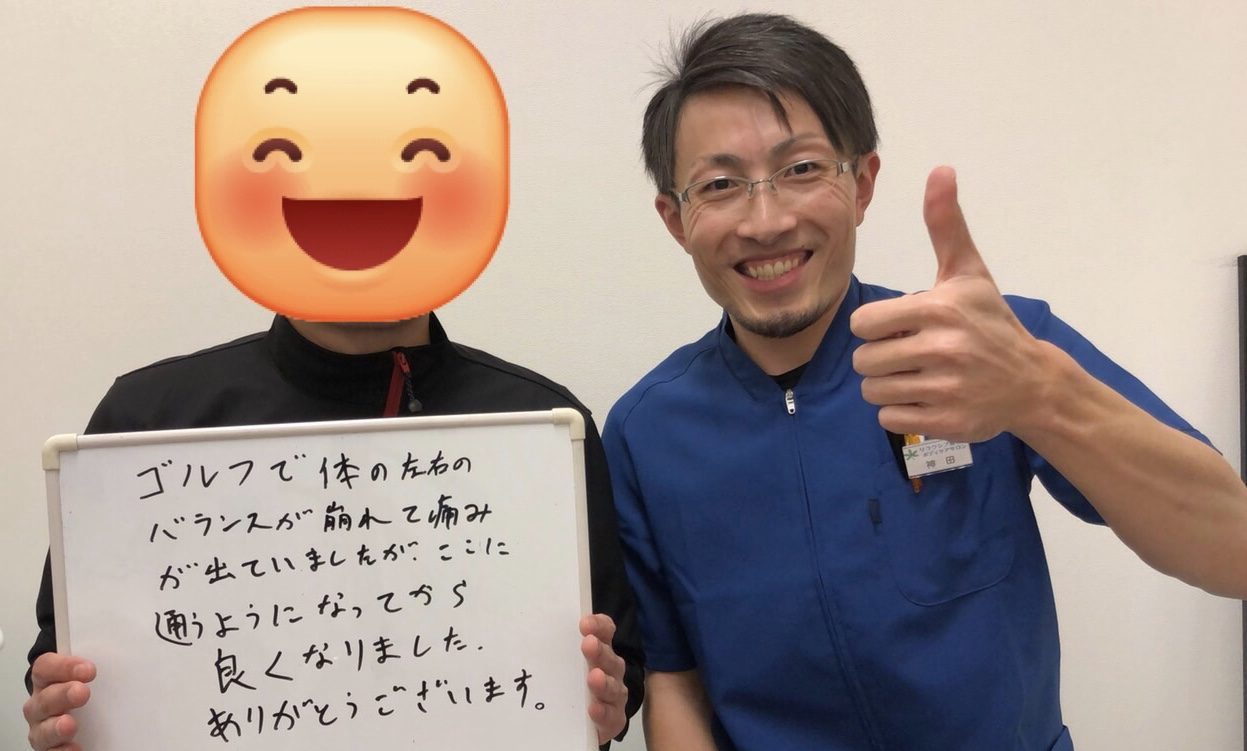 ゴルフで体の左右の
バランスが崩れて痛み
が出ていましたが、ここに
通うようになってから
良くなりました.
ありがとうございます。
ボディケアサロン
神田